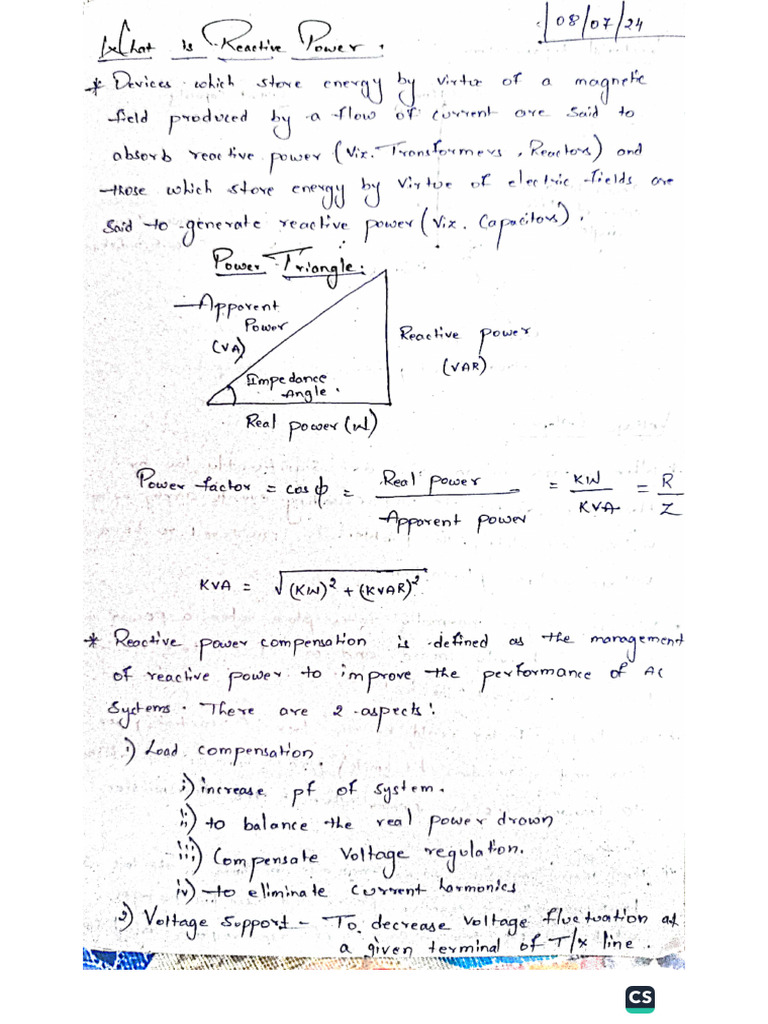 08/07/24
What is Reactive Power.
* Devices which store energy by virtue of a magnetic
field produced by a flow of current are said to
absorb reactive power (Viz. Transformers, Reactors) and
those which store energy by virtue of electric fields are
said to generate reactive power (Viz. Capacitors).
Power Triangle:
Apparent
Power
(VA)
Reactive power
(VAR)
Impedance
Angle.
Real power (W)
Power factor = cosφ = Real power / Apparent power = KW / KVA = R / Z
KVA = √(KW)² + (KVAR)²
* Reactive power compensation is defined as the management
of reactive power to improve the performance of AC
systems. There are 2 aspects:
1) Load compensation
i) increase pf of system.
ii) to balance the real power drawn
iii) Compensate Voltage regulation.
iv) to eliminate current harmonics
2) Voltage Support - To decrease voltage fluctuation at
a given terminal of T/x line.
CS